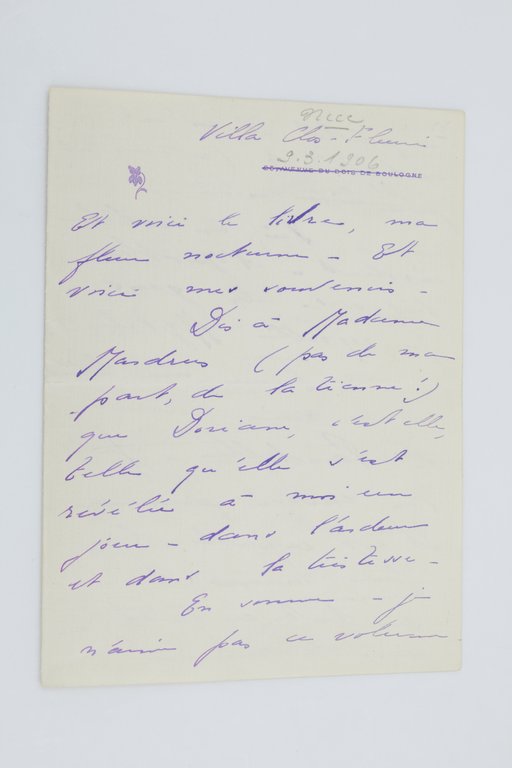 Nice
Villa Clos-Fleuri
9.3.1906
AVENUE DU BOIS DE BOULOGNE
Et voici le livre, ma
fleur nocturne - Et
voici mes souvenirs -
Dis à Madame
Mardrus (pas de ma
part, de la tienne!)
que Doriane, c'est elle,
telle qu'elle s'est
révélée à moi un
jour - dans l'ardeur
et dans la tristesse -
En somme - je
n'aime pas ce volume -